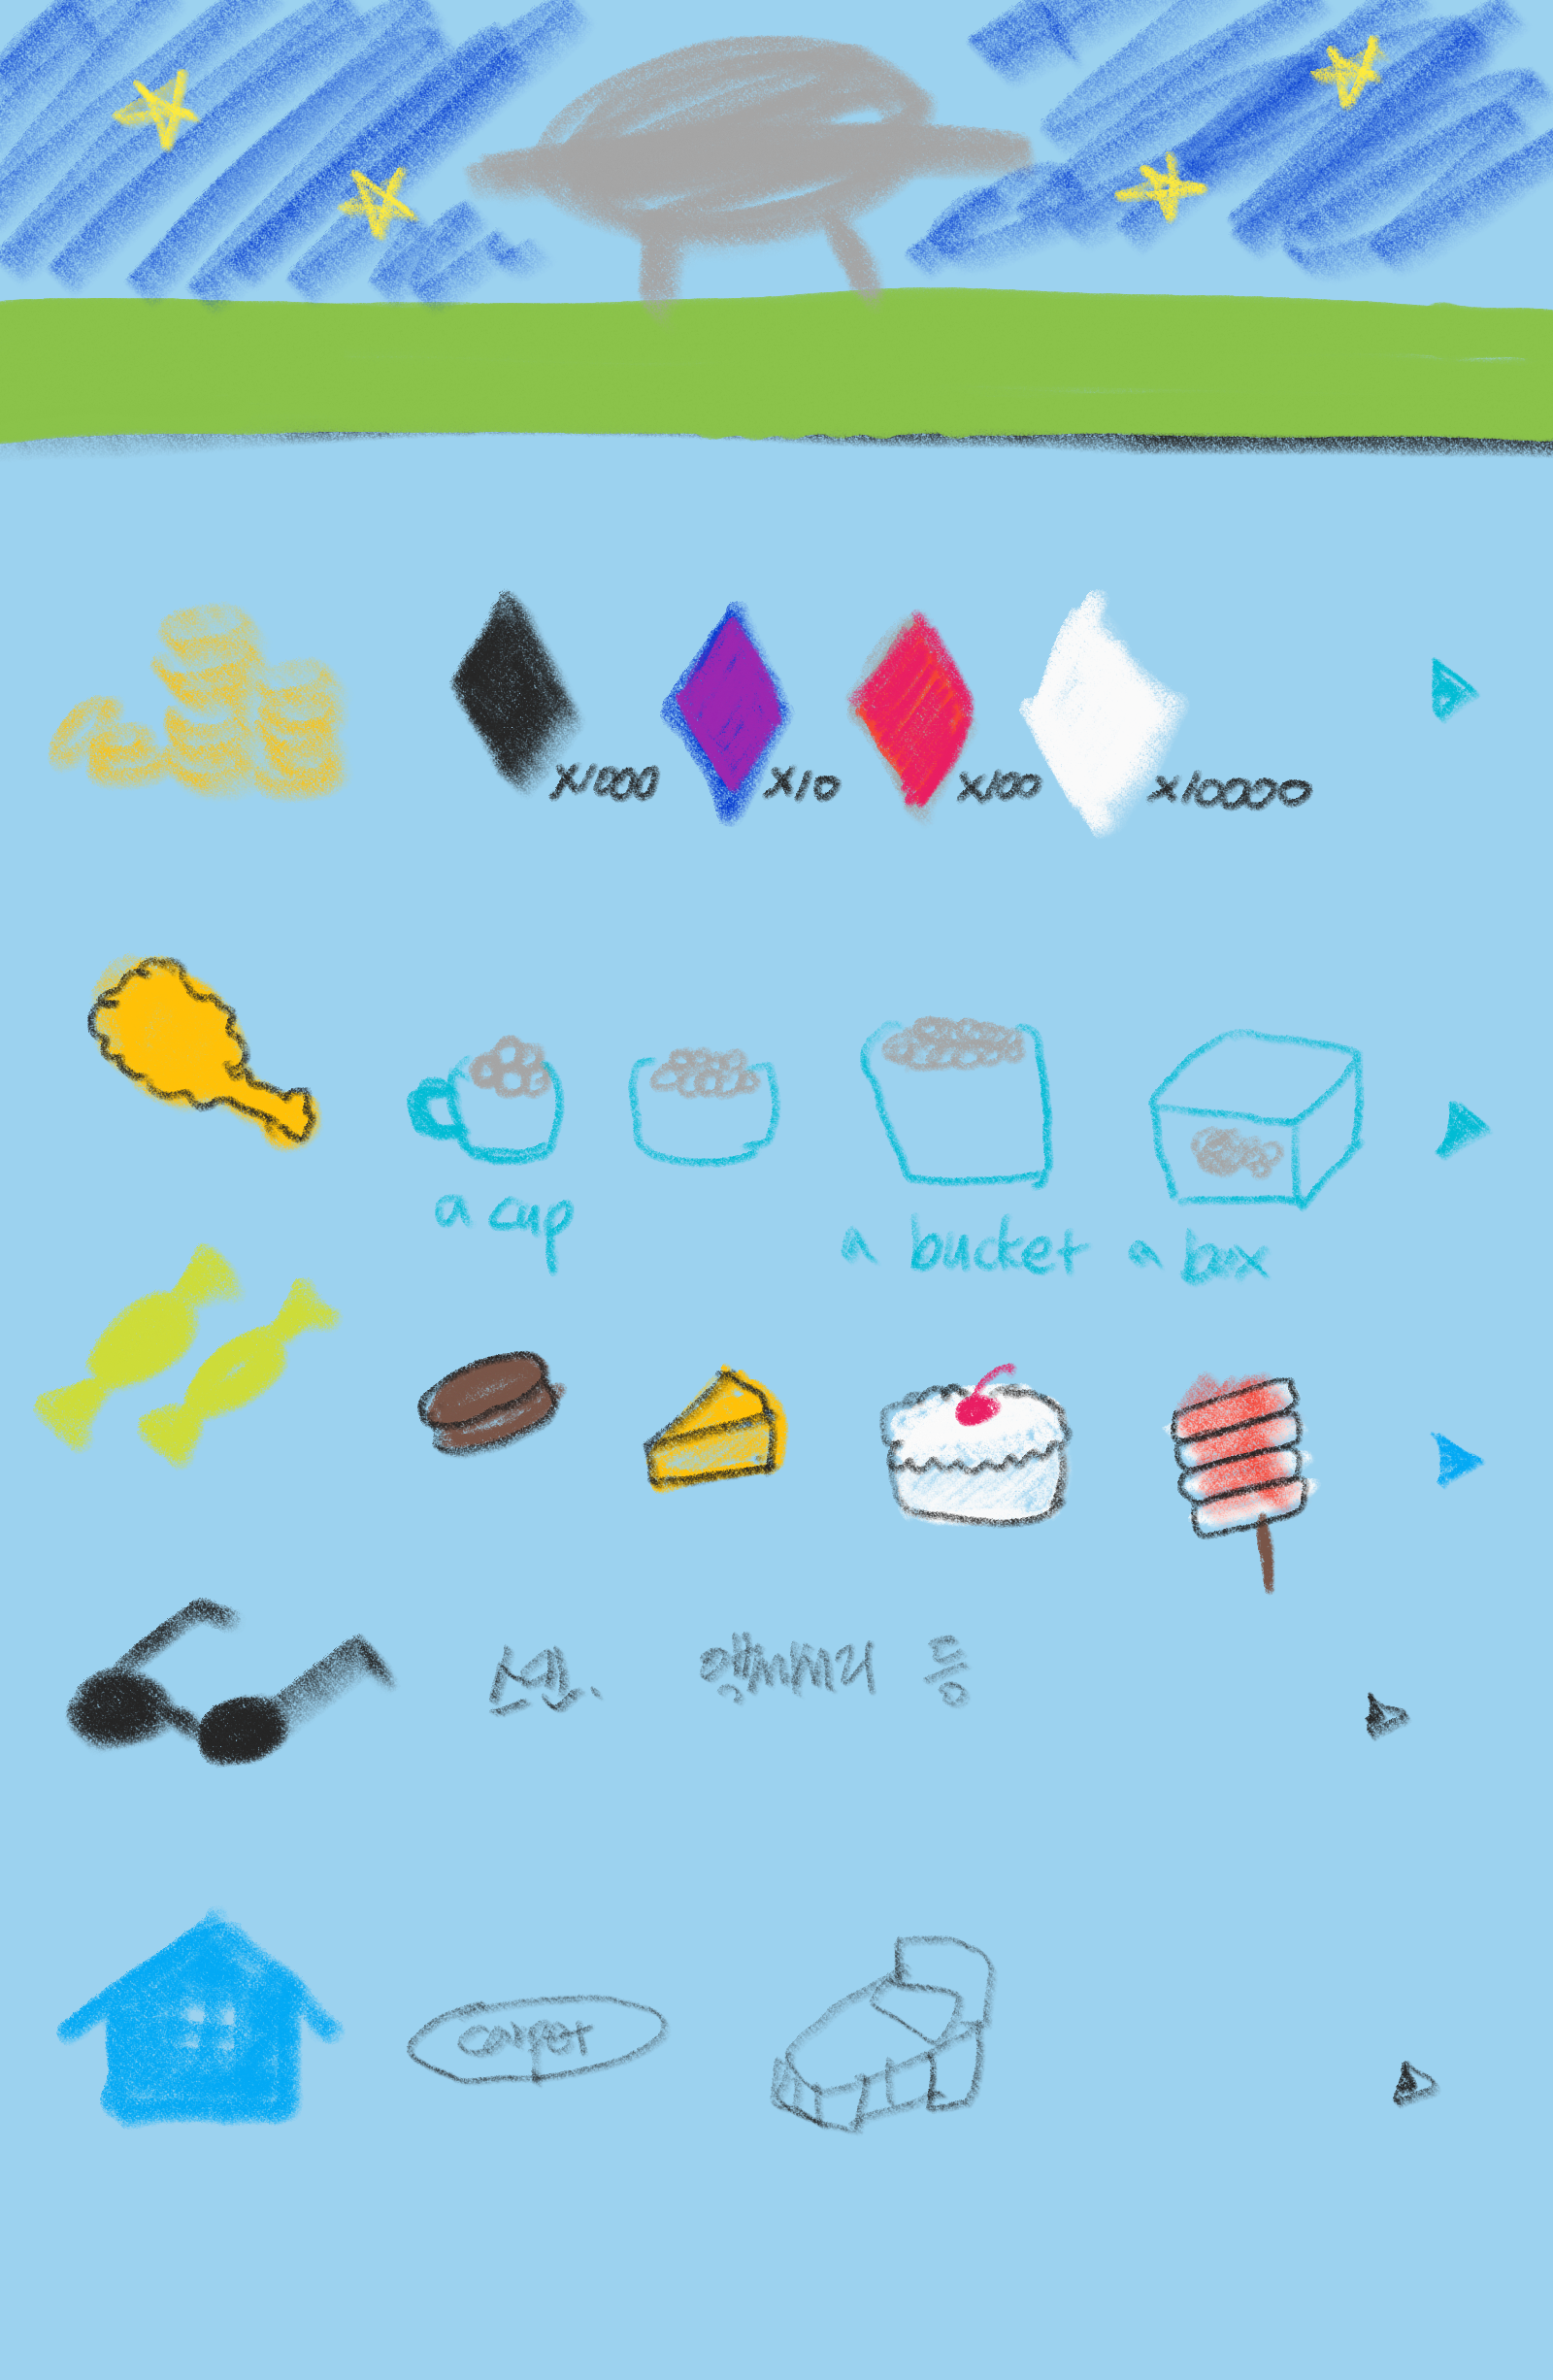 x1000 x10 x100 x10000
a cup a bucket a box
스킨. 액세서리 등
carpet